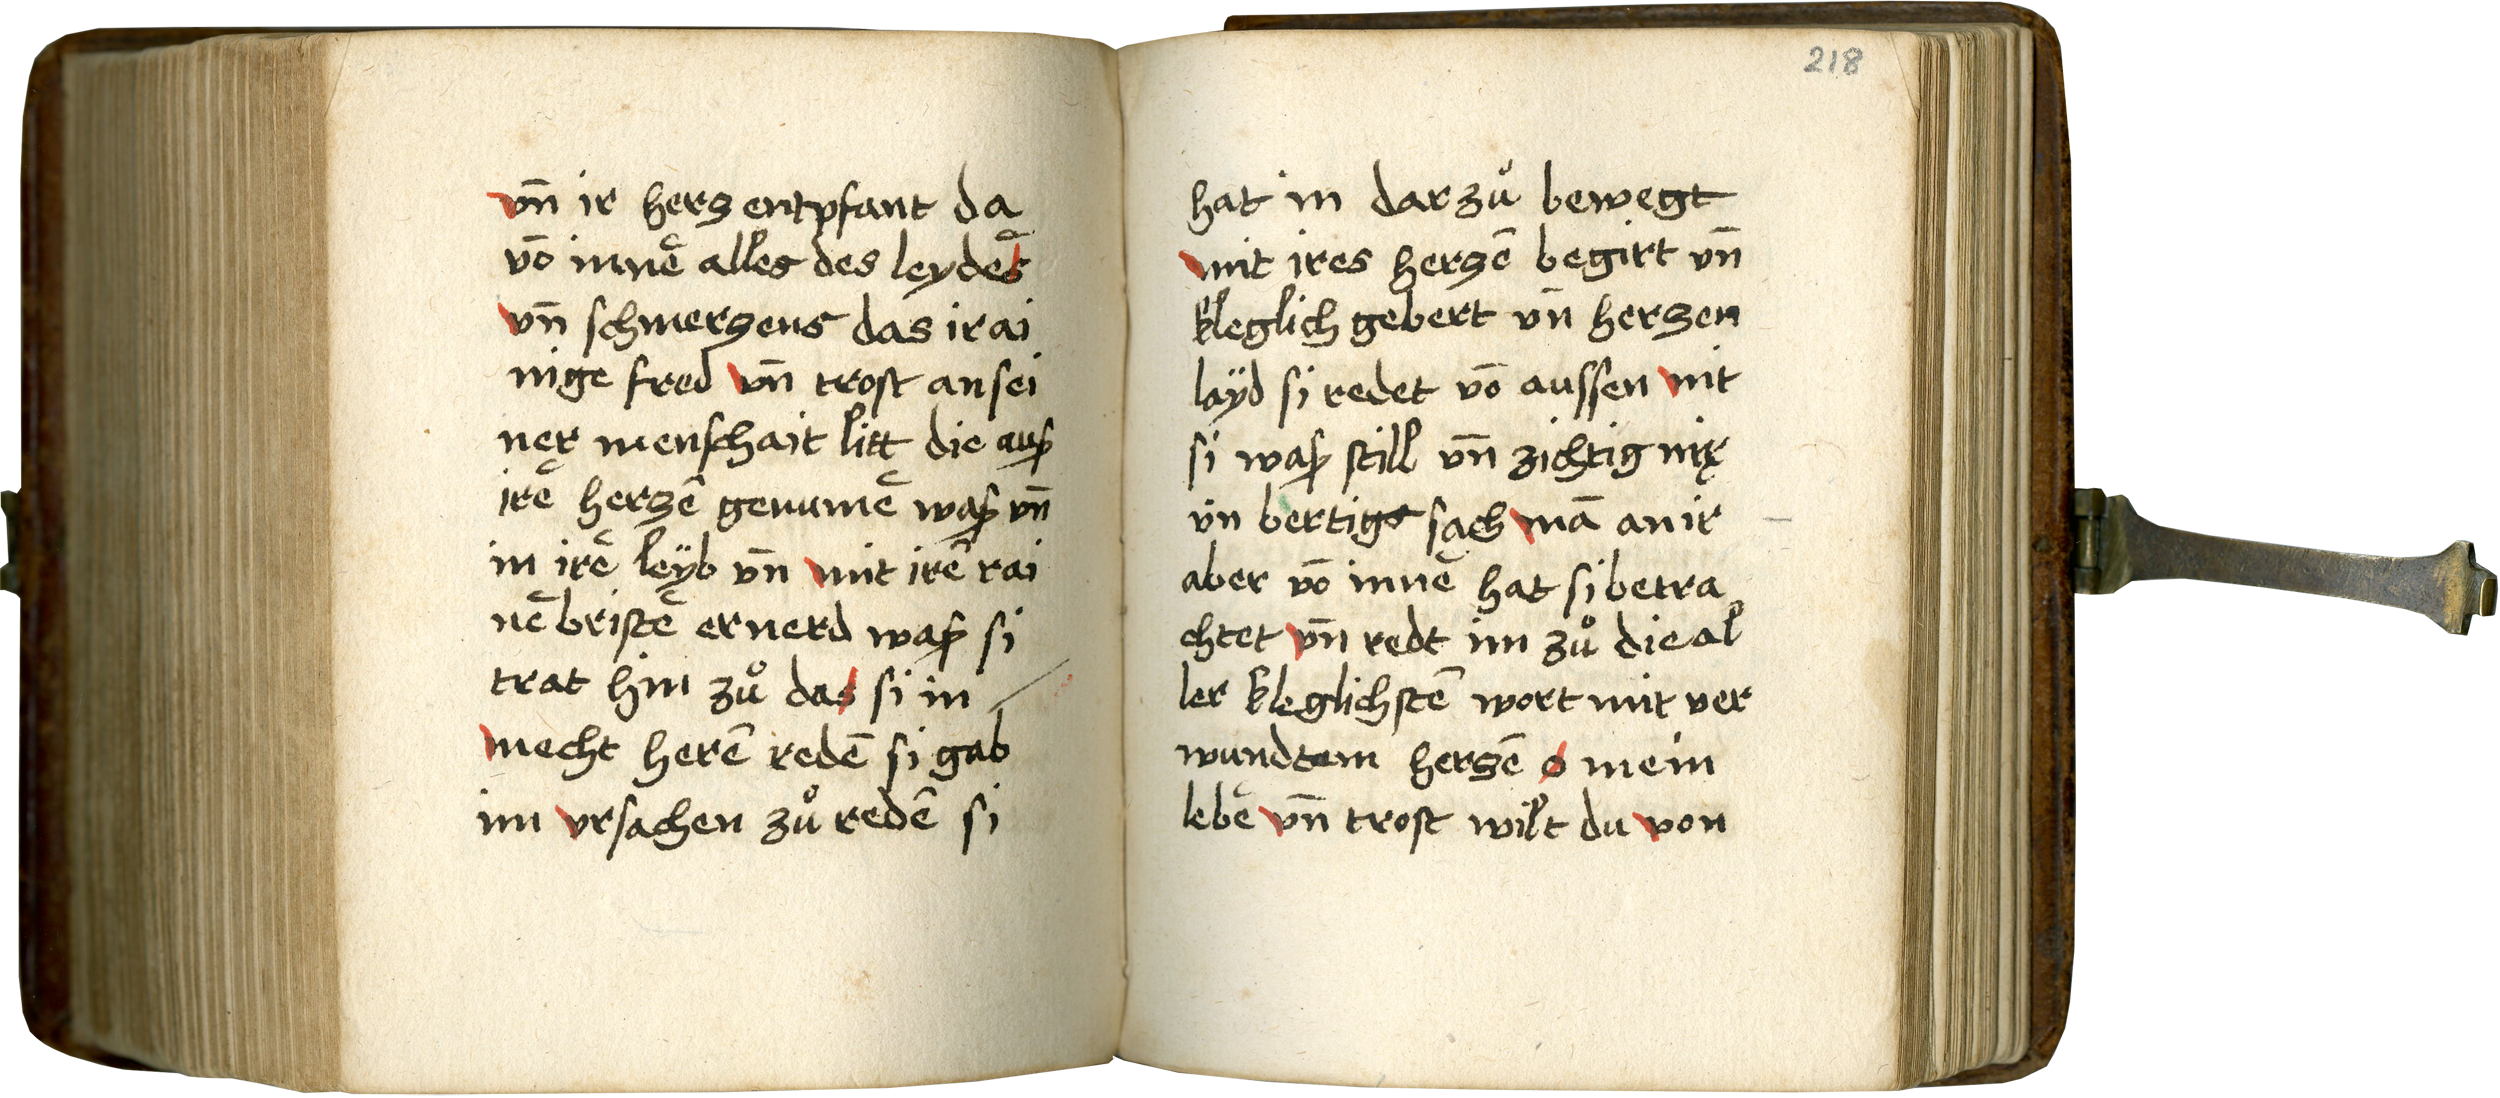 vn̄ ir hercz entpfant da
vō innē alles des leydēs
vn̄ schmerczens das ir ai
nige fred vn̄ trost an sei
ner menschait litt die auß
irē herczē genumē waß vn̄
in irē leÿb vn̄ mit irē rai
nē bristē ernerd waß si
trat hin zů das si in
mecht herē redē si gab
im vrsachen zů redē si
218
hat in darzů bewegt
mit ires herczē begirt vn̄
kleglich gebert vn̄ herczen
layd si redet vō aussen nit
si waß still vn̄ zichtig
vn bertigs sach mā an ir
aber vō innē hat si betra
chtet vn̄ redt im zů die al
ler kleglichstē wort mit ver
wundtem herczē o mein
lebē vn̄ trost wilt du von